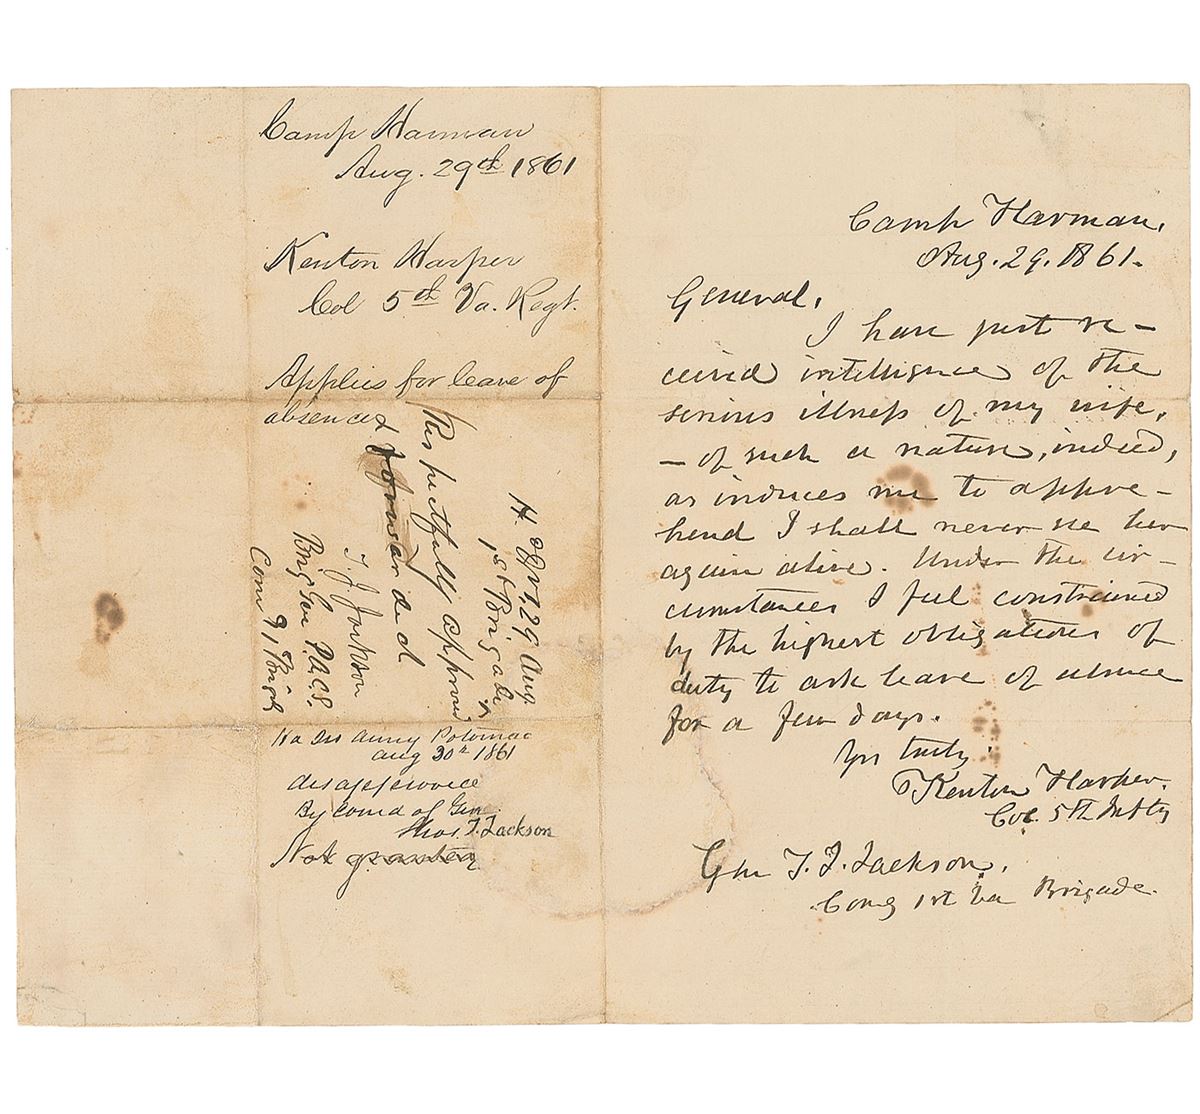 Camp Harman
Aug. 29th 1861
Kenton Harper
Col 5th Va. Regt.
Applies for leave of
absence
H. Qrs 29 Aug.
1st Brigade
Respectfully approved
& forwarded
T. J. Jackson
Brig Gen P.A.C.S.
Com 1 Brigd
Hd Qrs Army Potomac
Aug 30th 1861
disapproved
By Comd of Gen.
Thos. J. Jackson
Not granted
Camp Harman,
Aug. 29. 1861.
General,
I have just re-
ceived intelligence of the
serious illness of my wife,
- of such a nature, indeed,
as induces me to appre-
hend I shall never see her
again alive. Under the cir-
cumstances I feel constrained
by the highest obligations of
duty to ask leave of absence
for a few days.
Yrs truly
Kenton Harper.
Col. 5th Infty
Gen T. J. Jackson,
Comg 1st Va Brigade.